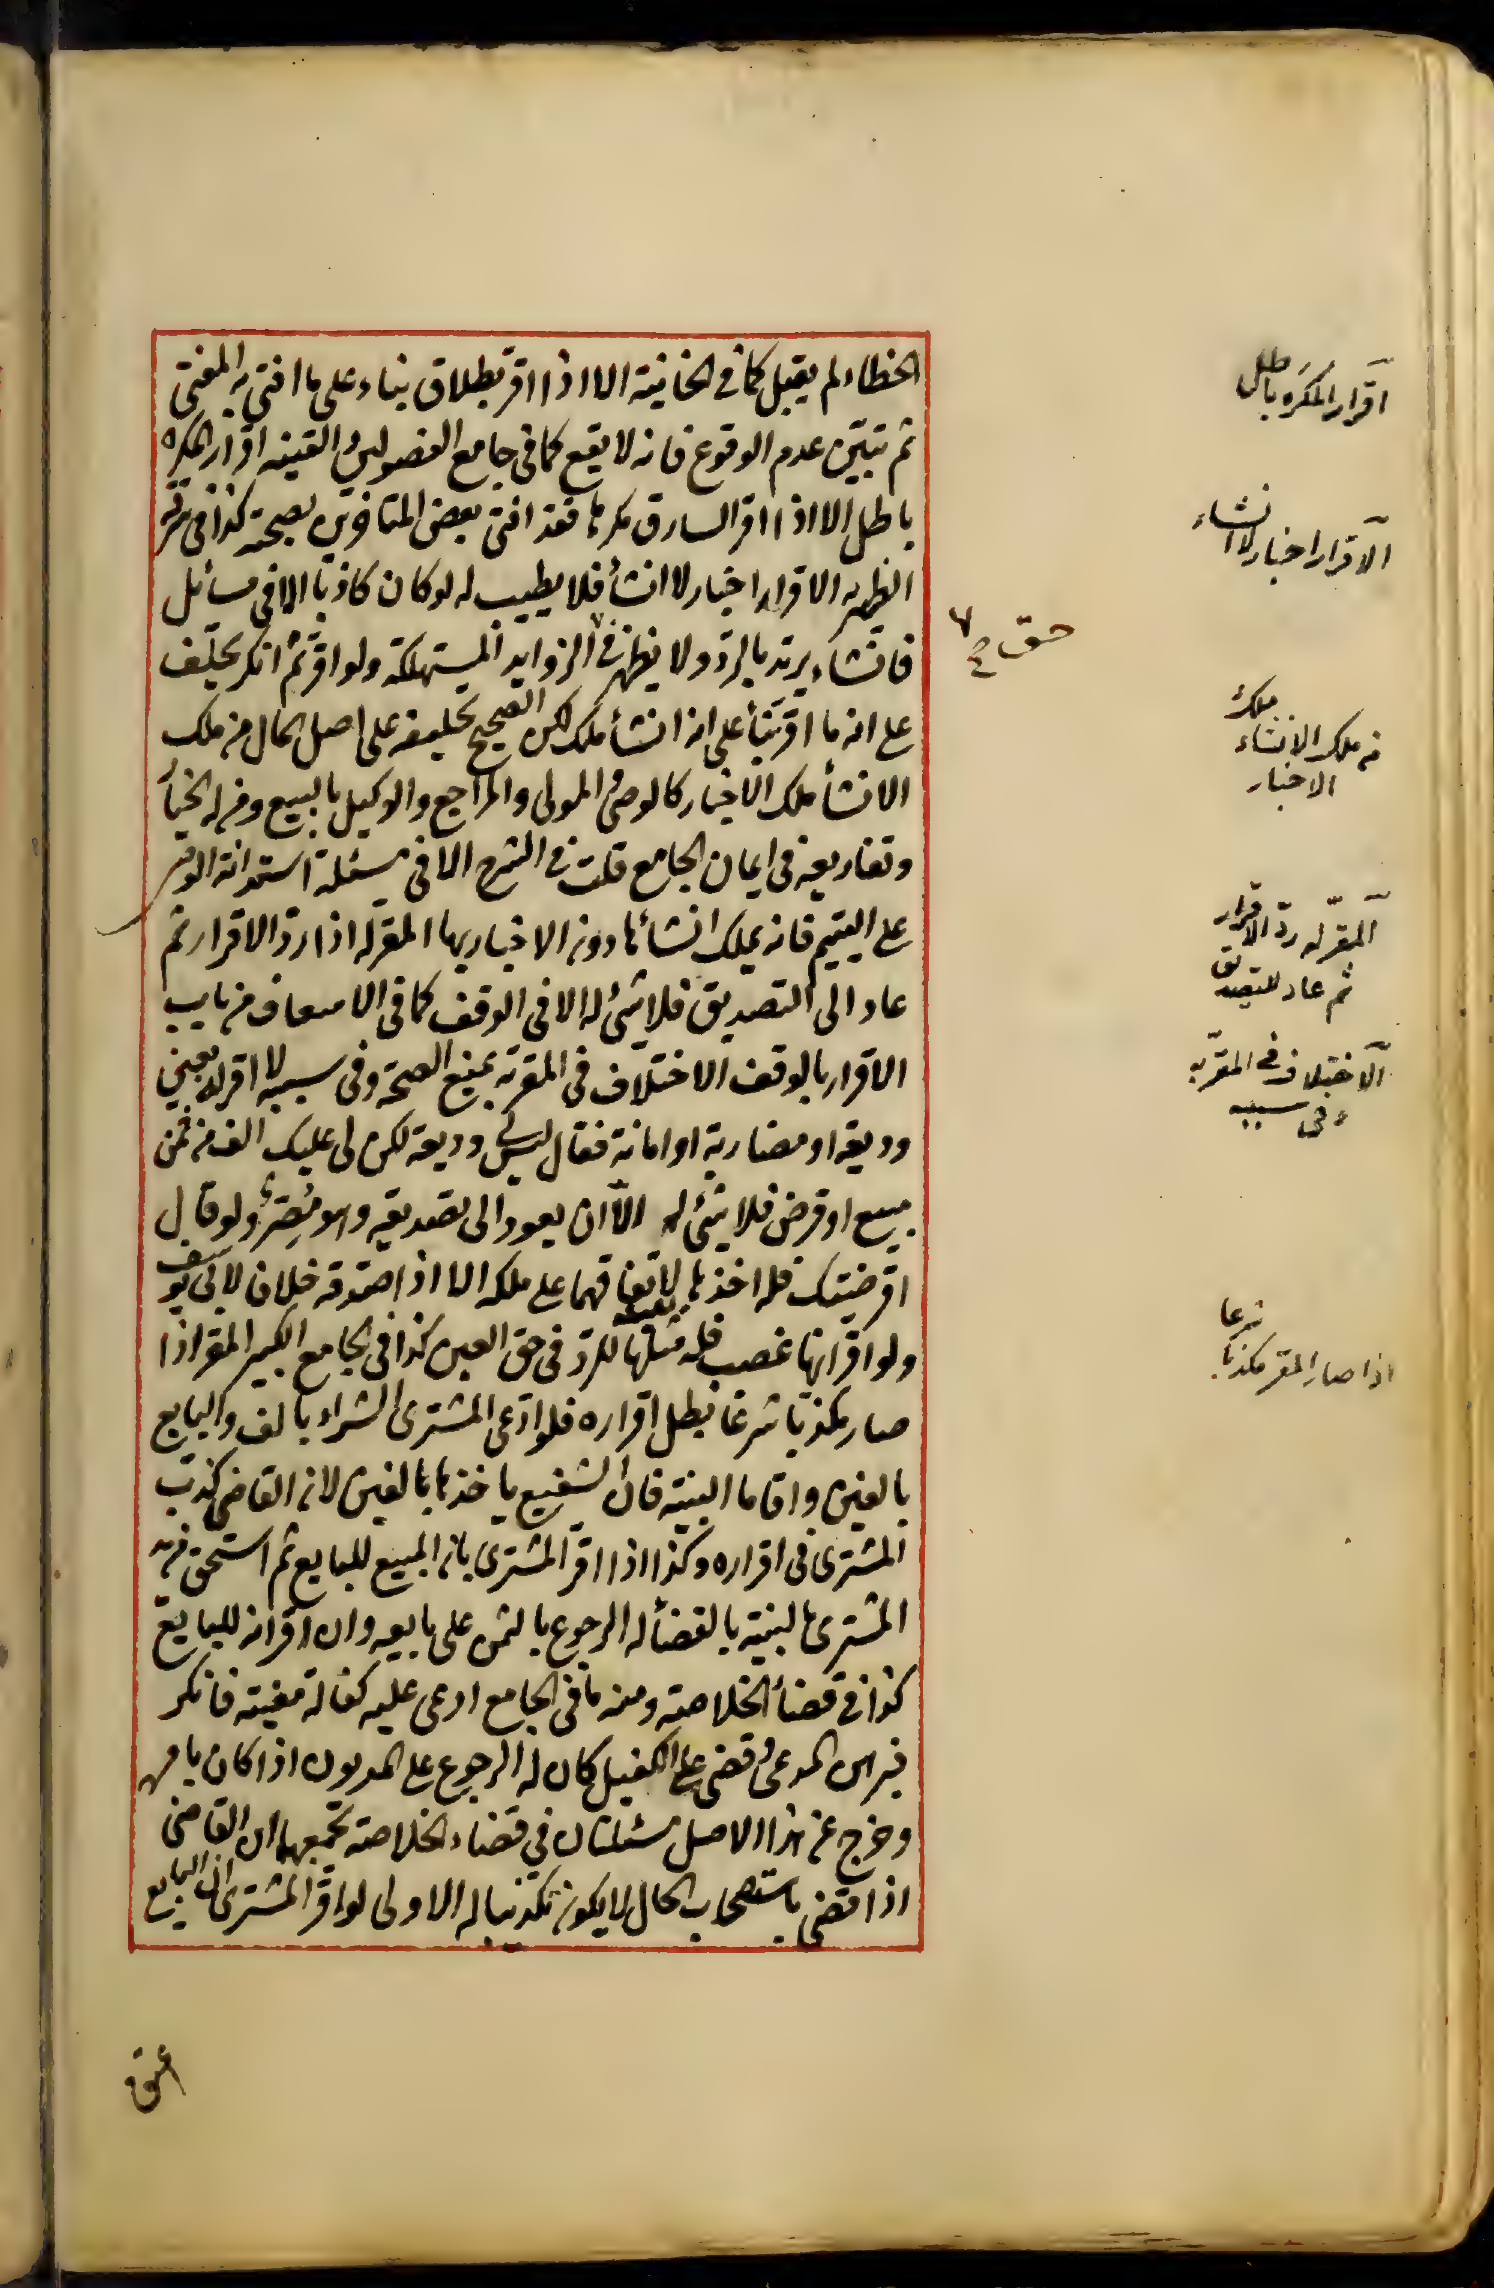 الخطاء لم يقبل كما فى الخانية الا اذا اقرّ بطلاق بناء على ما افتى به المفتى
ثم تبيّن عدم الوقوع فانه لا يقع كما فى جامع الفصولين والقنيه اقرار المكره
باطل الا اذا اقر السارق مكرها فقد افتى بعض المتاخرين بصحته كذا فى سرقة
الظهيريه الاقرار اخبار لا انشأ فلا يطيب له لو كان كاذبا الا فى مسائل
فانشاء يرتد بالردّ ولا يظهر فى الزوايد المستهلكة ولو اقرّ ثم انكر يحلّف
على انه ما اقرّ بنأ على انه انشأ ملك لكن الصحيح تحليفه على اصل المال من ملك
الانشأ ملك الاخبار كالوصى والمولى والمراجع والوكيل بالبيع ومن له الخيار
وتفاريعه فى ايمان الجامع قلت فى الشرح الا فى مسئلة استدانة الوصى
على اليتيم فانه يملك انشائها دون الاخبار بها المقرله اذا ردّ الاقرار ثم
عاد الى التصديق فلا شئ له الا فى الوقف كما فى الاسعاف من باب
الاقرار بالوقف الاختلاف فى المقرّ به يمنع الصحة وفى سببه لا اقر له بعين
وديعة او مضاربة او امانة فقال ليس لى وديعة لكن لى عليك الف من ثمن
مبيع او قرض فلا شئ له الا ان يعود الى تصديقه وهو مُصِرّ ولو قال
اقرضتك فله اخذها لاتفاقهما على ملكه الا اذا صدّقه خلافا لابى يوسف
ولو اقر انها غصب فله مثلها للردّ فى حق العين كذا فى الجامع الكبير المقر اذا
صار مكذبا شرعا بطل اقراره فلو ادّعى المشترى الشراء بالف والبايع
بالفين واقاما البينة فان الشفيع ياخذها بالفين لان القاضى كذب
المشترى فى اقراره وكذا اذا اقر المشترى بان المبيع للبايع ثم استحق من يد
المشترى بالبينة بالقضأ له الرجوع بالثمن على بايعه وان اقر انه للبايع
كذا فى قضأ الخلاصة ومنه ما فى الجامع ادعى عليه كفالة معينة فانكر
فبرهن المدعى وقضى على الكفيل كان له الرجوع على المديون اذا كان بامره
وخرج عن هذا الاصل مسئلتان فى قضاء الخلاصة تجمعهما ان القاضى
اذا قضى باستصحاب الحال لا يكون تكذيبا له الاولى لو اقر المشترى ان البايع
اعتق
اقرار المكره باطل
الاقرار اخبار لا انشاء
من ملك الانشاء ملك
الاخبار
المقرّ له ردّ الاقرار
ثم عاد للتصديق
الاختلاف فى المقرّ به
وفى سببه
اذا صار المقر مكذبا شرعا